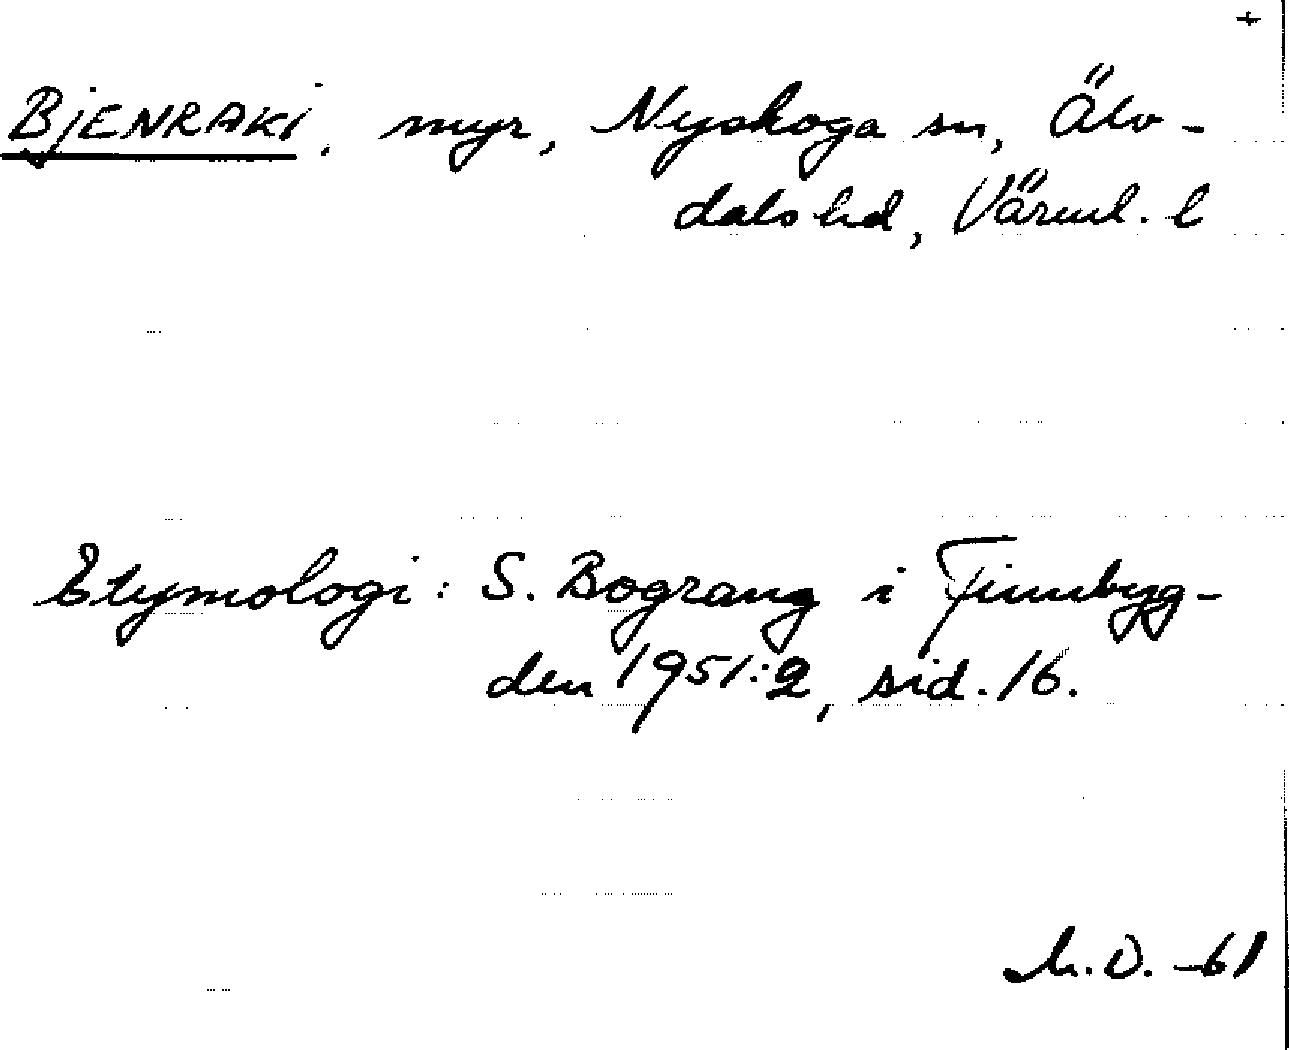 +
BjENRAKi, myr, Nyskoga sn, Älv-
dals hd, Värml. l
Etymologi: S. Bograng i Finnbyg-
den 1951:2, sid. 16.
M.O. -61